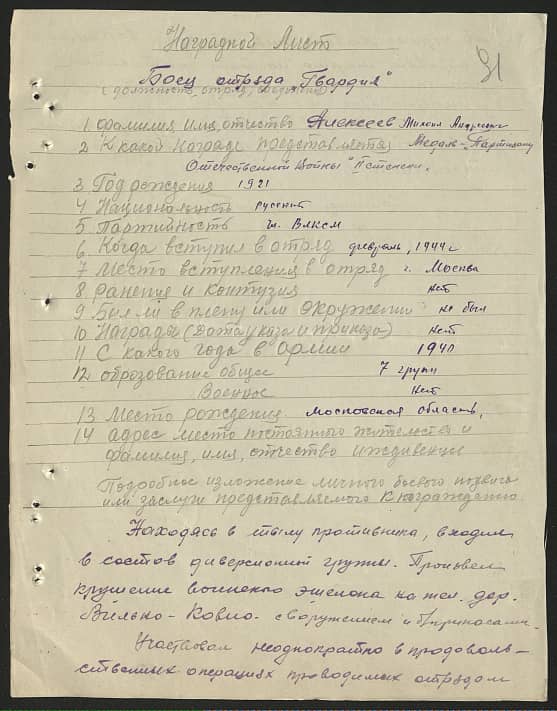 Наградной Лист
91
Боец отряда Гвардия"
(должность, отряд,
1 фамилия, имя, отчество Алексеев Михаил Андреевич
2 К какой награде представляется Медаль-"Партизану
Отечественной Войны" II степени.
3 Год рождения 1921
4 Национальность русский
5 Партийность чл. Влксм
6 Когда вступил в отряд февраль, 1944 г
7 Место вступления в отряд г. Москва
8 Ранения и контузия нет
9 Был ли в плену или окружении не был
10 Награды (дота указа и приказа) нет
11 С какого года в Армии 1940
12 оброзование общее 7 групп
Военное нет
13 Место рождения Московская область,
14 адрес место постоянного жительства и
фамилия, имя, отчество иждивенце
Подробное изложение личного боевого подвига
или заслуги представляемого К награждению
Находясь в тылу противника, входил
в состав диверсионной группы. Произвел
крушение воинского эшелона на жел. дор.
Вильно-Ковно. с воружением и б/припасами.
Участвовал неоднократно в продоволь-
ственных операциях проводимых отрядом